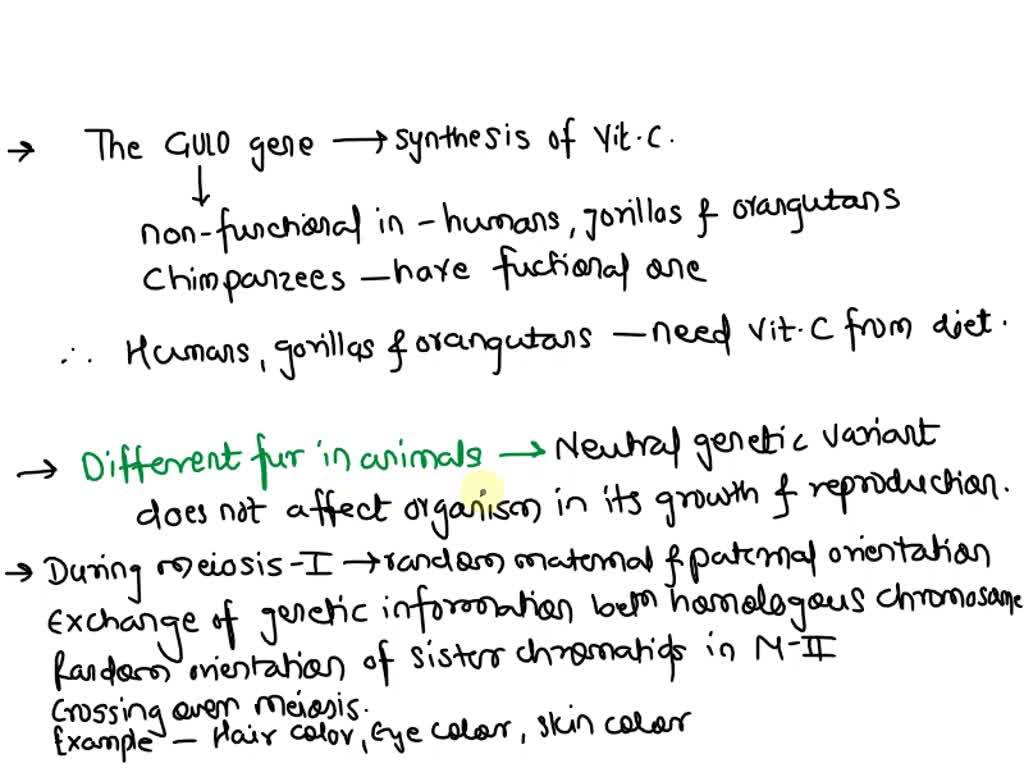 → The GULO gene → synthesis of Vit.C.
↓
non-functional in - humans, gorillas & orangutans
Chimpanzees - have fuctional one
∴ Humans, gorillas & orangutans - need Vit.C from diet.
→ Different fur in animals → Neutral genetic variant
does not affect organism in its growth & reproduction.
→ During meiosis-I → random maternal & paternal orientation
Exchange of genetic information betn homologous chromosome
Random orientation of sister chromatids in M-II
Crossing over meiosis.
Example - Hair color, Eye color, skin color